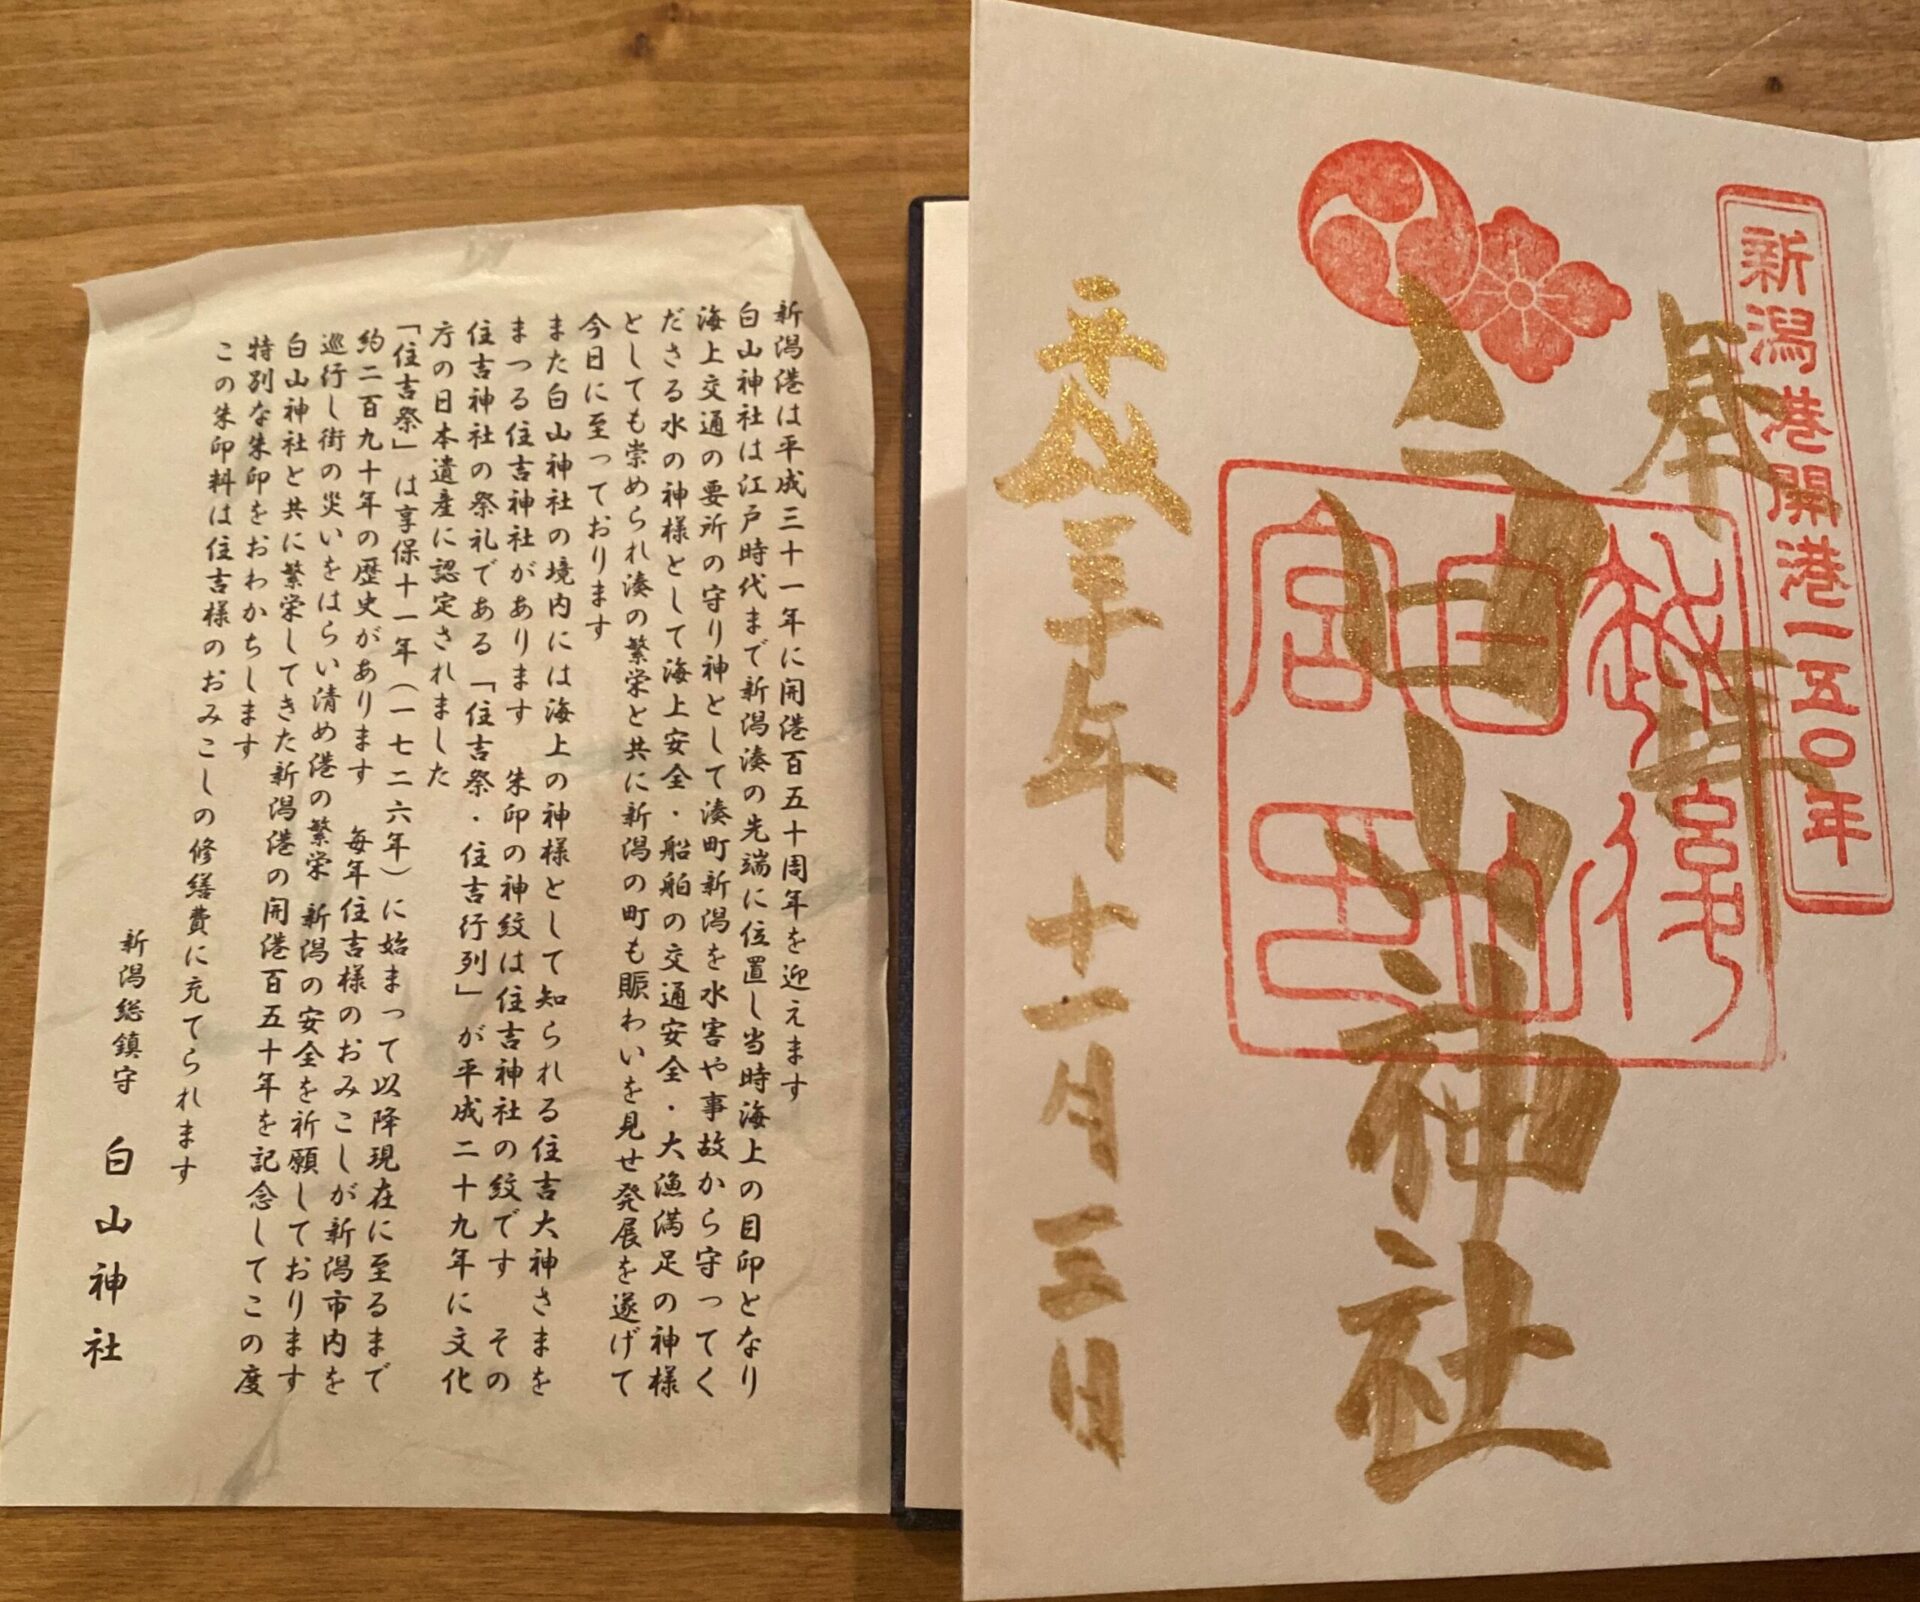 新潟港は平成三十一年に開港百五十周年を迎えます
白山神社は江戸時代まで新潟湊の先端に位置し当時海上の目印となり
海上交通の要所の守り神として湊町新潟を水害や事故から守ってく
ださる水の神様として海上安全・船舶の交通安全・大漁満足の神様
としても崇められ湊の繁栄と共に新潟の町も賑わいを見せ発展を遂げて
今日に至っております
また白山神社の境内には海上の神様として知られる住吉大神さまを
まつる住吉神社があります 朱印の神紋は住吉神社の紋です その
住吉神社の祭礼である「住吉祭・住吉行列」が平成二十九年に文化
庁の日本遺産に認定されました
「住吉祭」は享保十一年(一七二六年)に始まって以降現在に至るまで
約二百九十年の歴史があります 毎年住吉様のおみこしが新潟市内を
巡行し街の災いをはらい清め港の繁栄 新潟の安全を祈願しております
白山神社と共に繁栄してきた新潟港の開港百五十年を記念してこの度
特別な朱印をおわかちします
この朱印料は住吉様のおみこしの修繕費に充てられます
新潟総鎮守 白山神社
新潟港開港一五〇年
奉拝
白山神社
平成三十年十一月三日